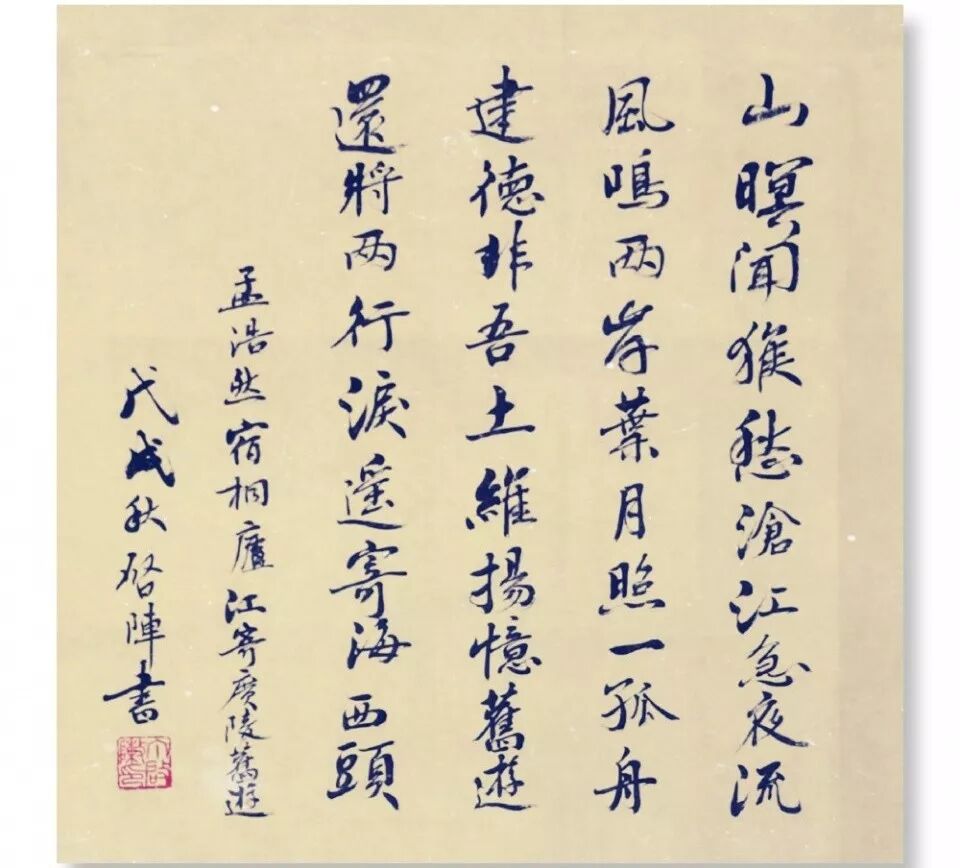 山暝聞猨愁滄江急夜流
風鳴两岸葉月照一孤舟
建德非吾土維揚憶舊遊
還將两行淚遥寄海西頭
孟浩然宿桐廬江寄廣陵舊遊
戊戌秋啓陣書